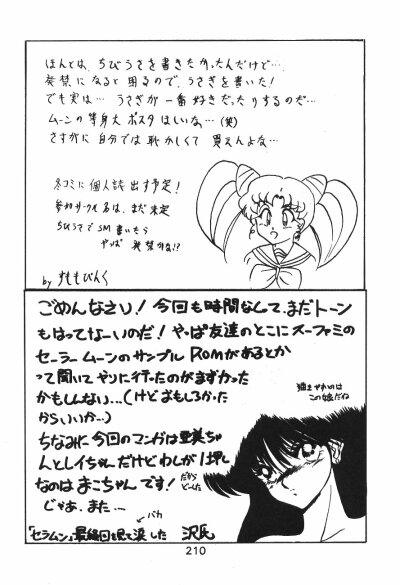 ほんとは、ちびうさを書きたかったんだけど…、
発禁になると困るので、うさぎを書いた!
でも実は… うさぎが一番好きだったりするのだ…
ムーンの等身大ポスタほしいな…(笑)
さすがに自分では恥かしくて 買えんよな…
冬コミに個人誌出す予定!
参加サークル名は、まだ未定
ちびうさでSM書いたら
やっぱ 発禁かな!?
by すももぴんく
ごめんなさい!今回も時間なくて、まだトーン
もはってなーいのだ!やっぱ友達のとこにスーファミの
セーラームーンのサンプルROMがあるとか
って聞いてやりに行ったのがまずかった
かもしんない…(けどおもしろかった
からいいか…)
ちなみに今回のマンガは亜美ちゃ
んとレイちゃんだけどわしが1押し
なのはまこちゃんです!だから
どーした
じゃあ、また…
「セラムン」最終回を見て涙した バカ 沢氏
この娘だね
210